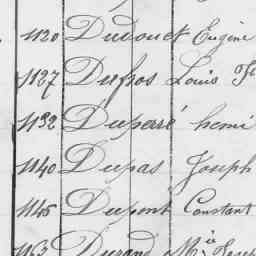 1120 Dudouet Eugène
1127 Dufros Louis
1132 Duperré henri
1140 Dupas Joseph
1145 Dupont Constant
1163 Durand M.ie